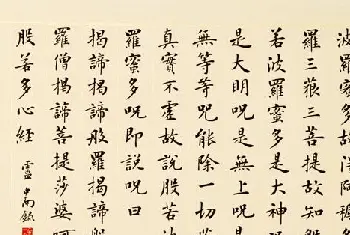 羅三藐三菩提故知般
若波羅蜜多是大神咒
是大明咒是無上咒是
無等等咒能除一切苦
真實不虛故說般若波
羅蜜多咒即說咒曰
揭諦揭諦般羅揭諦般
羅僧揭諦菩提莎婆訶
般若多心経